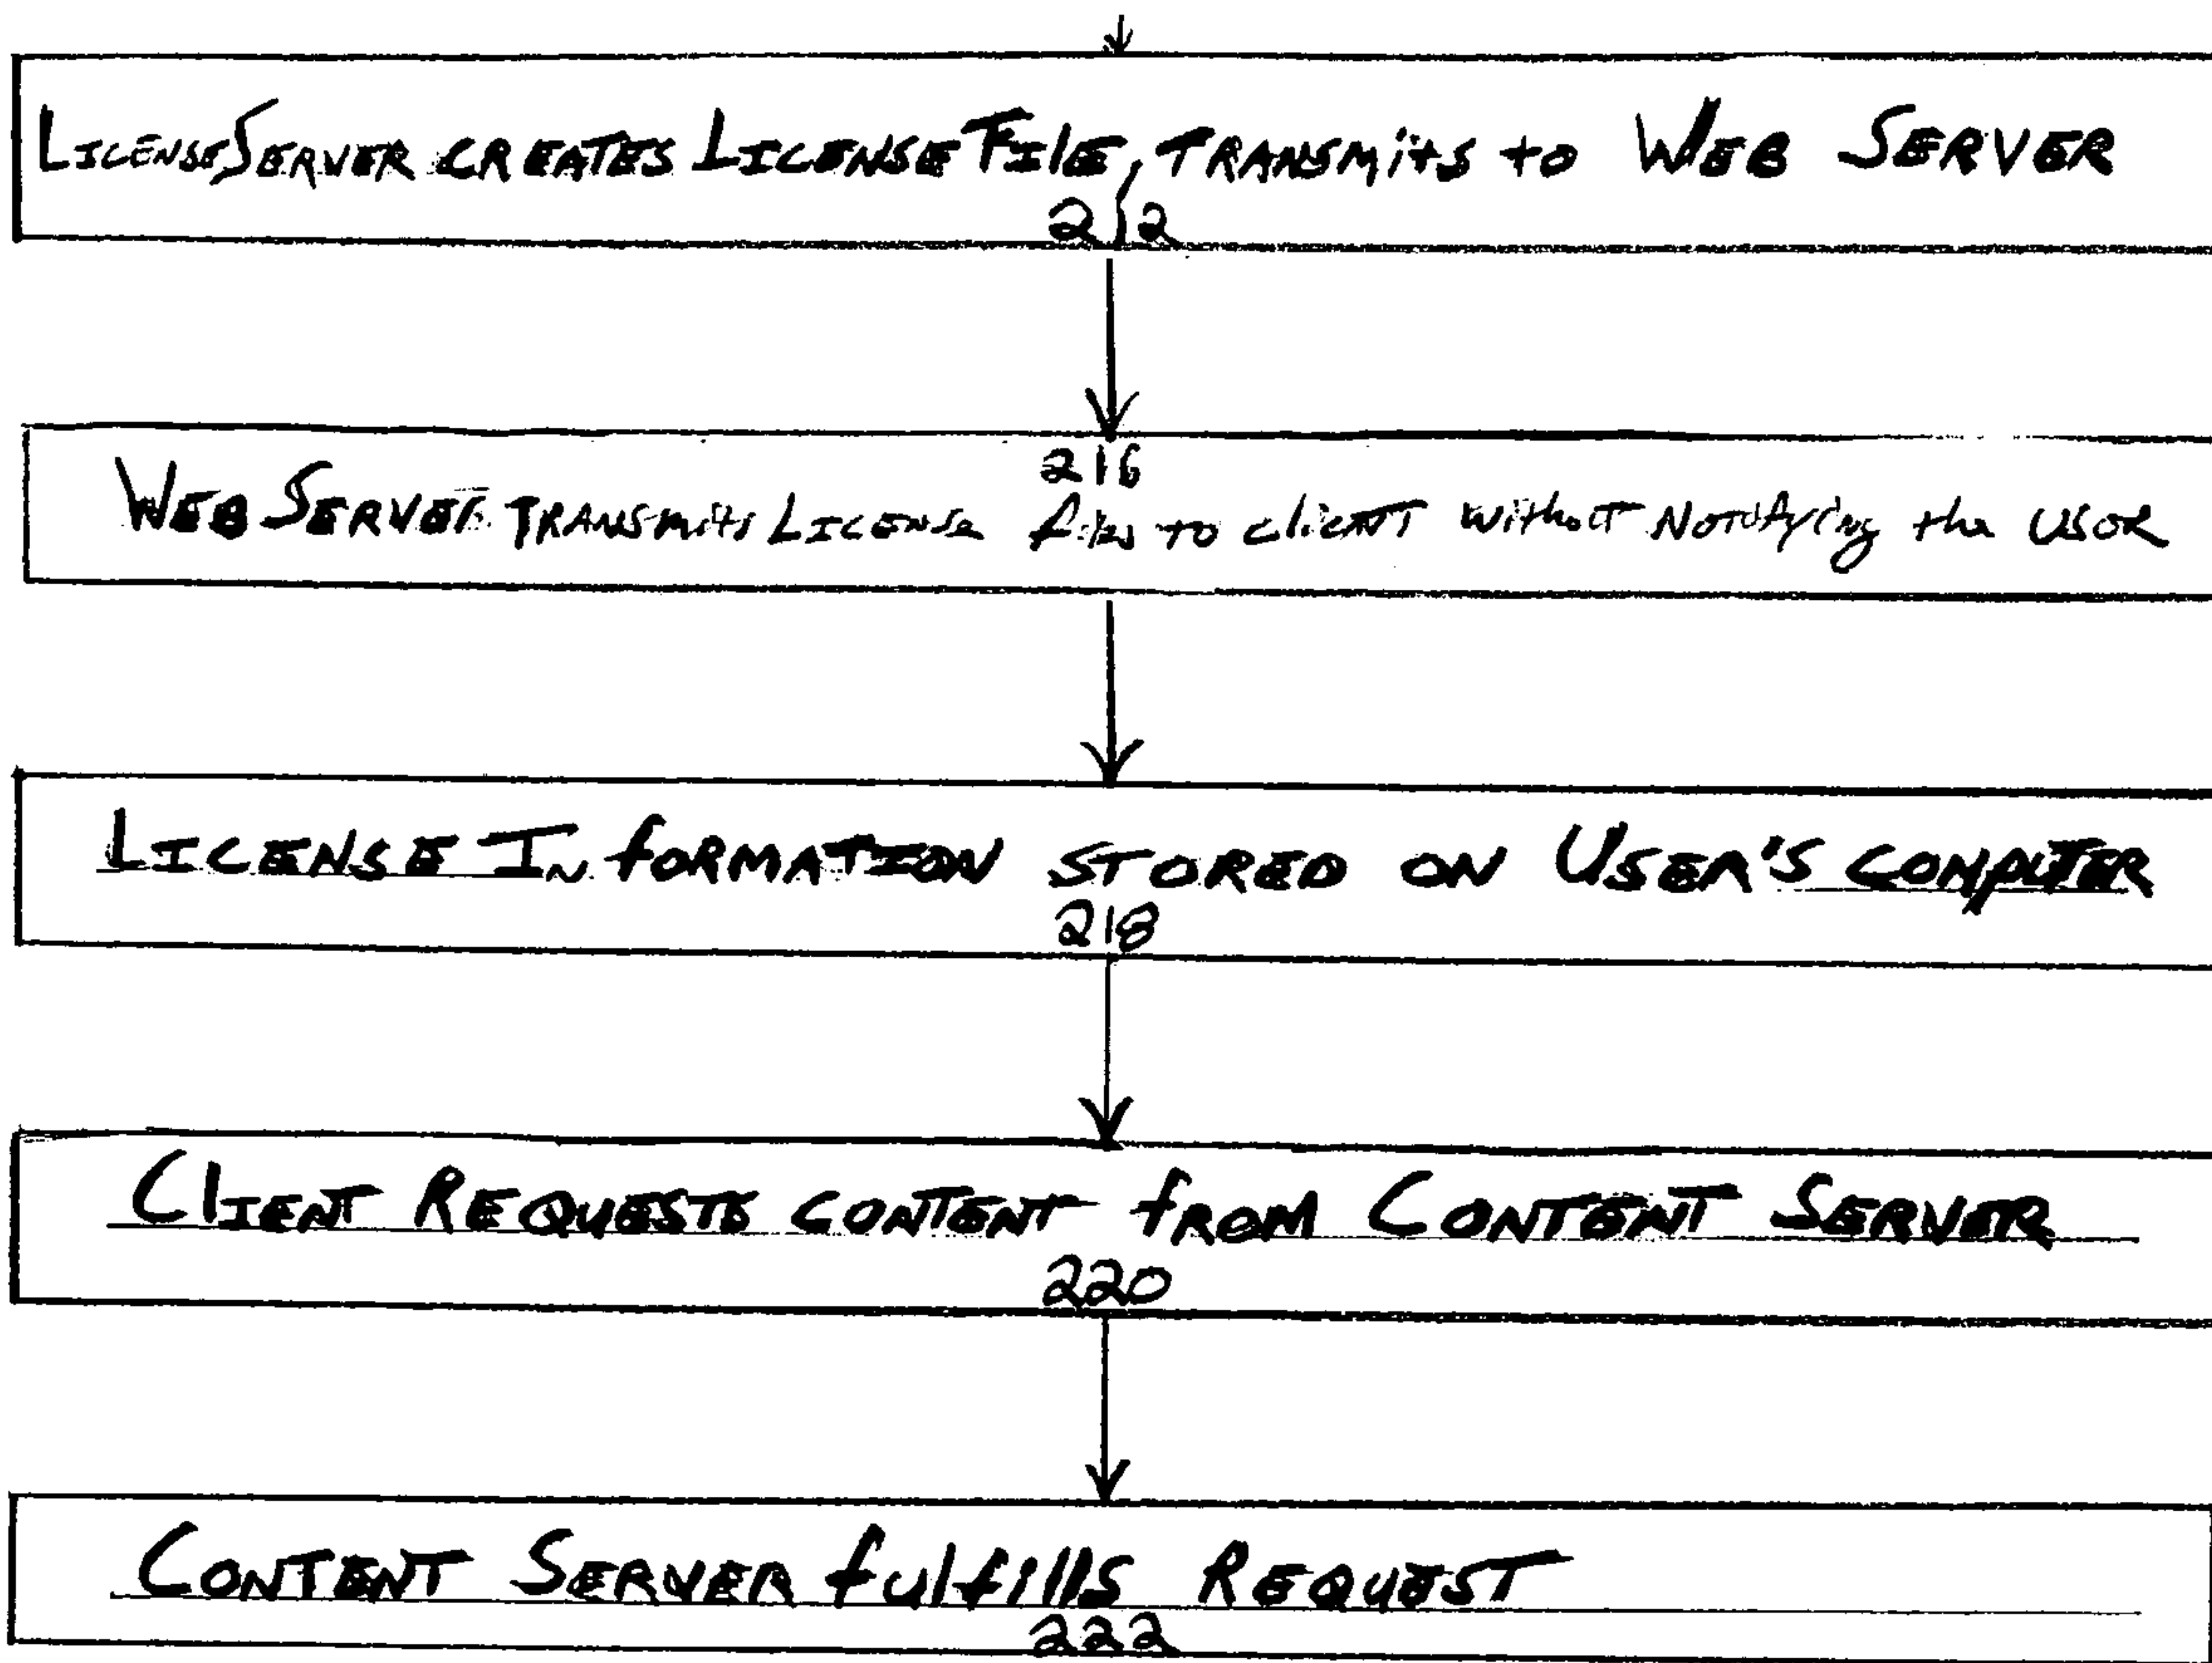 LICENSE SERVER CREATES LICENSE FILE, TRANSMITS TO WEB SERVER
212
216
WEB SERVER TRANSMITS LICENSE files TO CLIENT WITHOUT NOTIFYING the USER
LICENSE INFORMATION STORED ON USER'S COMPUTER
218
CLIENT REQUESTS CONTENT FROM CONTENT SERVER
220
CONTENT SERVER fulfills REQUEST
222